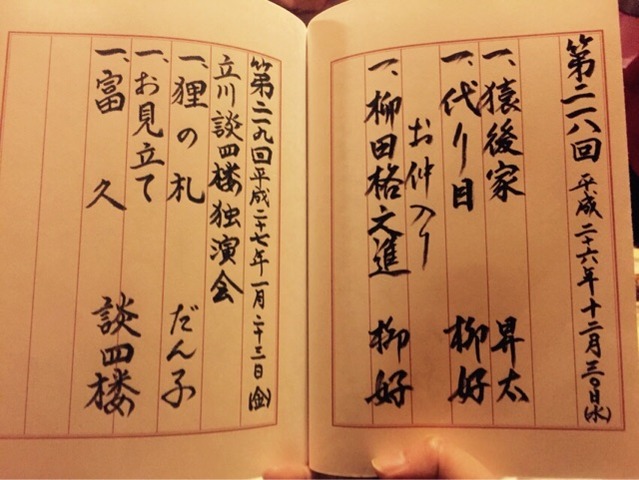 第二一八回 平成二十六年十二月三〇日(火)
一、猿後家 昇太
一、代り目 柳好
お仲入り
一、柳田格之進 柳好
第二一九回 平成二十七年一月二十三日(金)
立川談四楼独演会
一、狸の札 だん子
一、お見立て
一、富久 談四楼